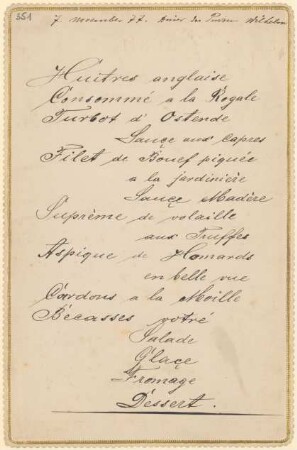 351
7 november 77. Diner du Prince Wilhelm
Huîtres anglaise
Consommé a la Royale
Turbot d'Ostende
Sauçe aux Capres
Filet de Bouef piquée
a la jardinière
Sauçe Madère
Suprème de volaille
aux Truffes
Aspique de Homards
en belle vue
Cardons a la Moille
Bécasses rotré
Salade
Glaçe
Fromage
Déssert.